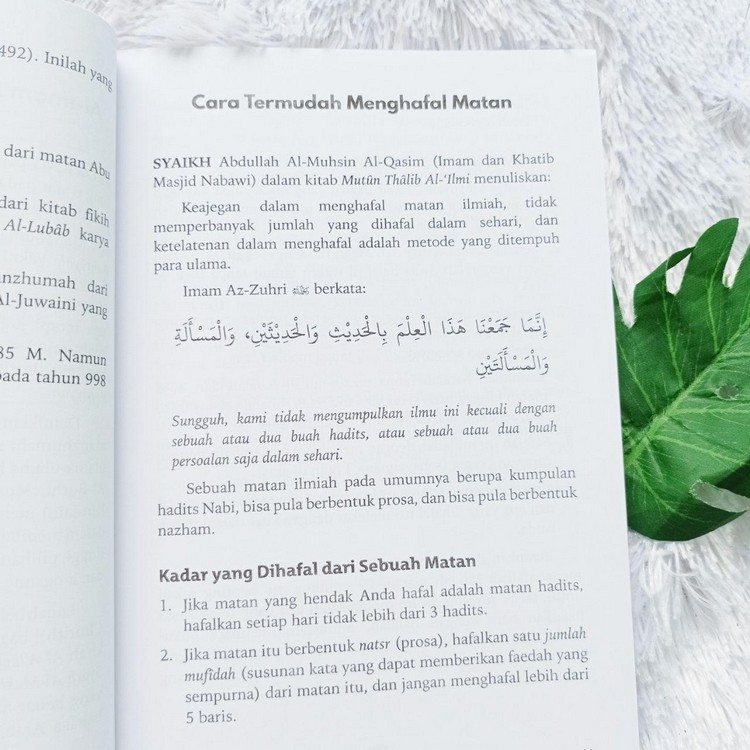 492). Inilah yang
dari matan Abu
dari kitab fikih
Al-Lubâb karya
anzhumah dari
Al-Juwaini yang
85 M. Namun
pada tahun 998
Cara Termudah Menghafal Matan
SYAIKH Abdullah Al-Muhsin Al-Qasim (Imam dan Khatib
Masjid Nabawi) dalam kitab Mutûn Thâlib Al-'Ilmi menuliskan:
Keajegan dalam menghafal matan ilmiah, tidak
memperbanyak jumlah yang dihafal dalam sehari, dan
ketelatenan dalam menghafal adalah metode yang ditempuh
para ulama.
Imam Az-Zuhri berkata:
إِنَّمَا جَمَعْنَا هَذَا الْعِلْمَ بِالْحَدِيْثِ وَالْحَدِيْثَيْنِ، وَالْمَسْأَلَةِ
وَالْمَسْأَلَتَيْنِ
Sungguh, kami tidak mengumpulkan ilmu ini kecuali dengan
sebuah atau dua buah hadits, atau sebuah atau dua buah
persoalan saja dalam sehari.
Sebuah matan ilmiah pada umumnya berupa kumpulan
hadits Nabi, bisa pula berbentuk prosa, dan bisa pula berbentuk
nazham.
Kadar yang Dihafal dari Sebuah Matan
1. Jika matan yang hendak Anda hafal adalah matan hadits,
hafalkan setiap hari tidak lebih dari 3 hadits.
2. Jika matan itu berbentuk natsr (prosa), hafalkan satu jumlah
mufîdah (susunan kata yang dapat memberikan faedah yang
sempurna) dari matan itu, dan jangan menghafal lebih dari
5 baris.